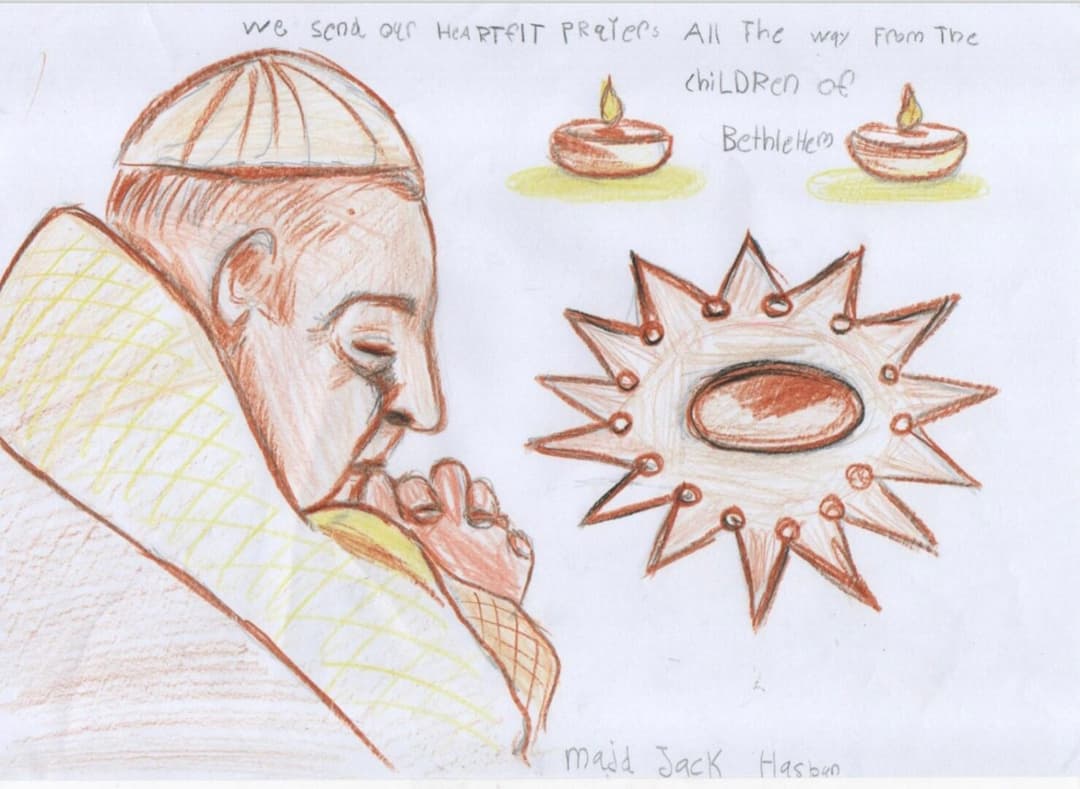 We send our HeARTfIT PRaYers All The way From The
chiLDRen of
BethleHem
Majd Jack Hasban